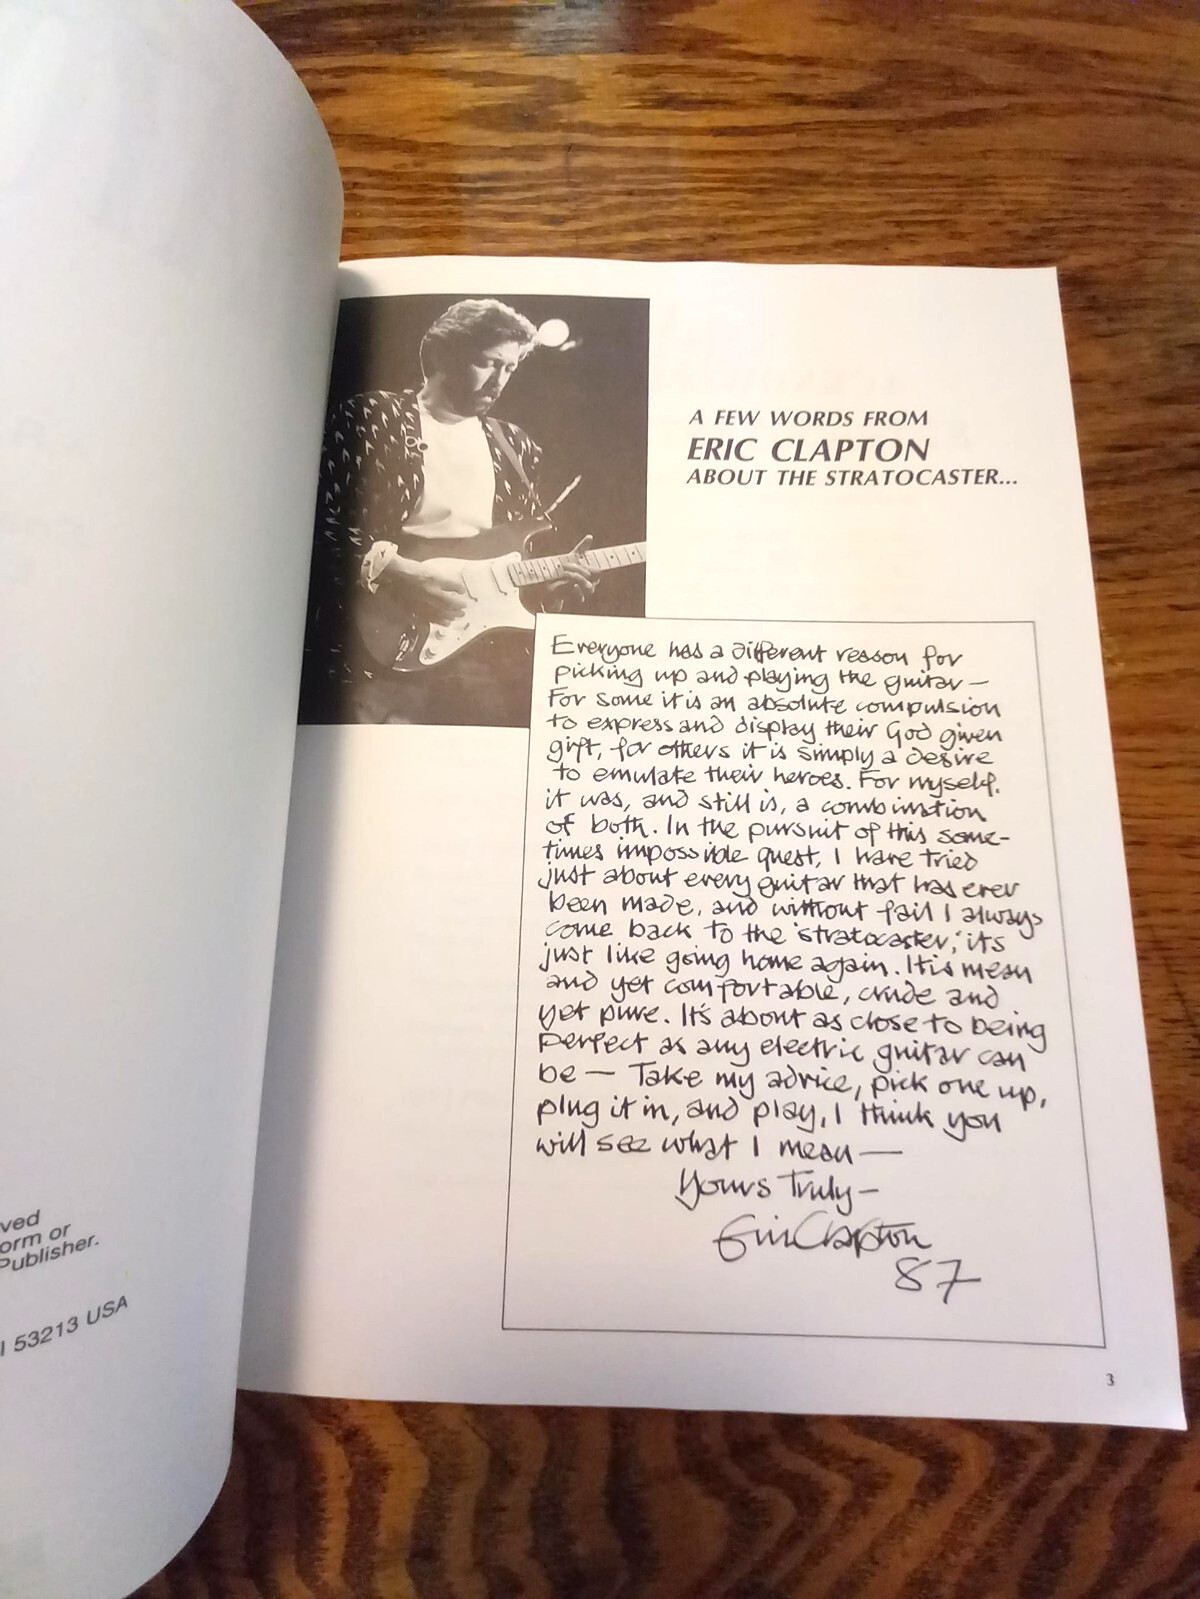 A FEW WORDS FROM
ERIC CLAPTON
ABOUT THE STRATOCASTER...
Everyone has a different reason for
picking up and playing the guitar —
For some it is an absolute compulsion
to express and display their God given
gift, for others it is simply a desire
to emulate their heroes. For myself,
it was, and still is, a combination
of both. In the pursuit of this some-
times impossible quest, I have tried
just about every guitar that has ever
been made, and without fail I always
come back to the 'stratocaster,' its
just like going home again. It is mean
and yet comfortable, crude and
yet pure. It's about as close to being
perfect as any electric guitar can
be — Take my advice, pick one up,
plug it in, and play, I think you
will see what I mean —
Yours Truly —
Eric Clapton
87
3
ved
orm or
Publisher.
I 53213 USA